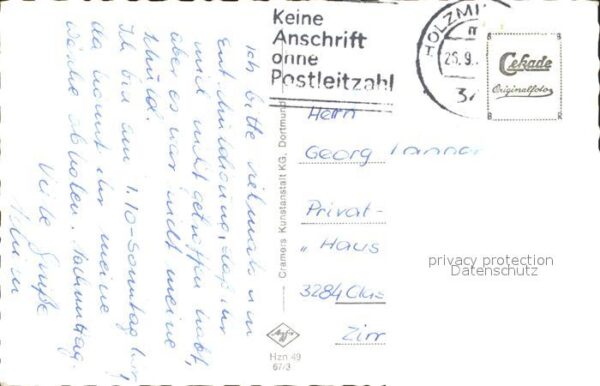 Keine
Anschrift
ohne
Postleitzahl
HOLZMI
26.9.
Cekade
Originalfoto
Ich bitte vielmals um
Entschuldigung, daß ihr
mich nicht getroffen habt,
aber es war nicht meine
Schuld.
Ich bin am 1.10-Sonntag hier,
da könnt ihr meine
Wäsche abholen. Nachmittag.
Viele Grüße
Cramers Kunstanstalt KG, Dortmund
Agfa
Hzn 49
67/3
Herrn
Georg Lanner
Privat-
„ Haus
3284
Zirr
privacy protection
Datenschutz